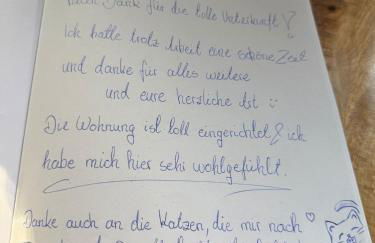 Vielen Dank für die tolle Unterkunft!
Ich hatte trotz Arbeit eine schöne Zeit
und danke für alles weitere
und eure herzliche Art :)
Die Wohnung ist toll eingerichtet & ich
habe mich hier sehr wohlgefühlt.
Danke auch an die Katzen, die mir nach